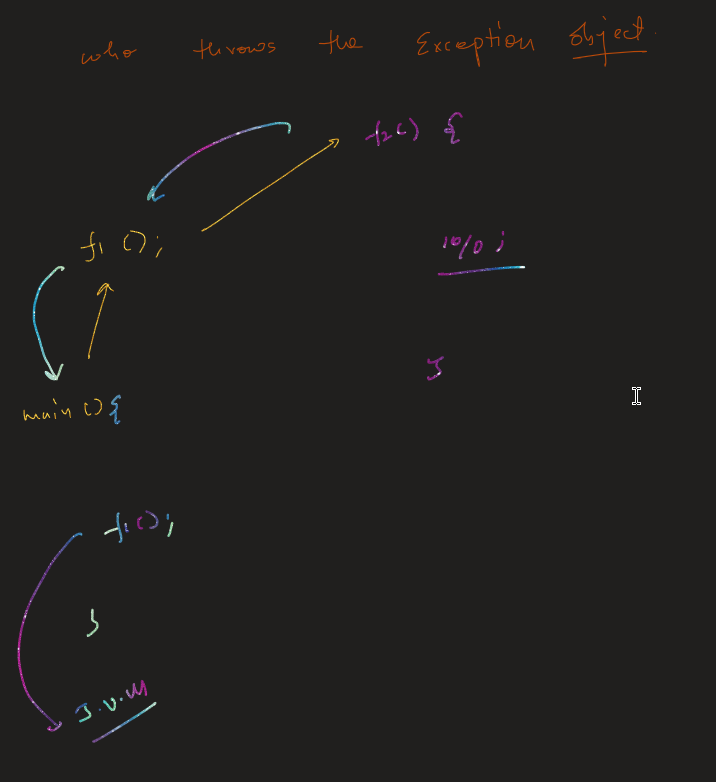 who throws the Exception object.
f2() {
f1();
10/0;
}
main(){
f1();
}
J.V.M